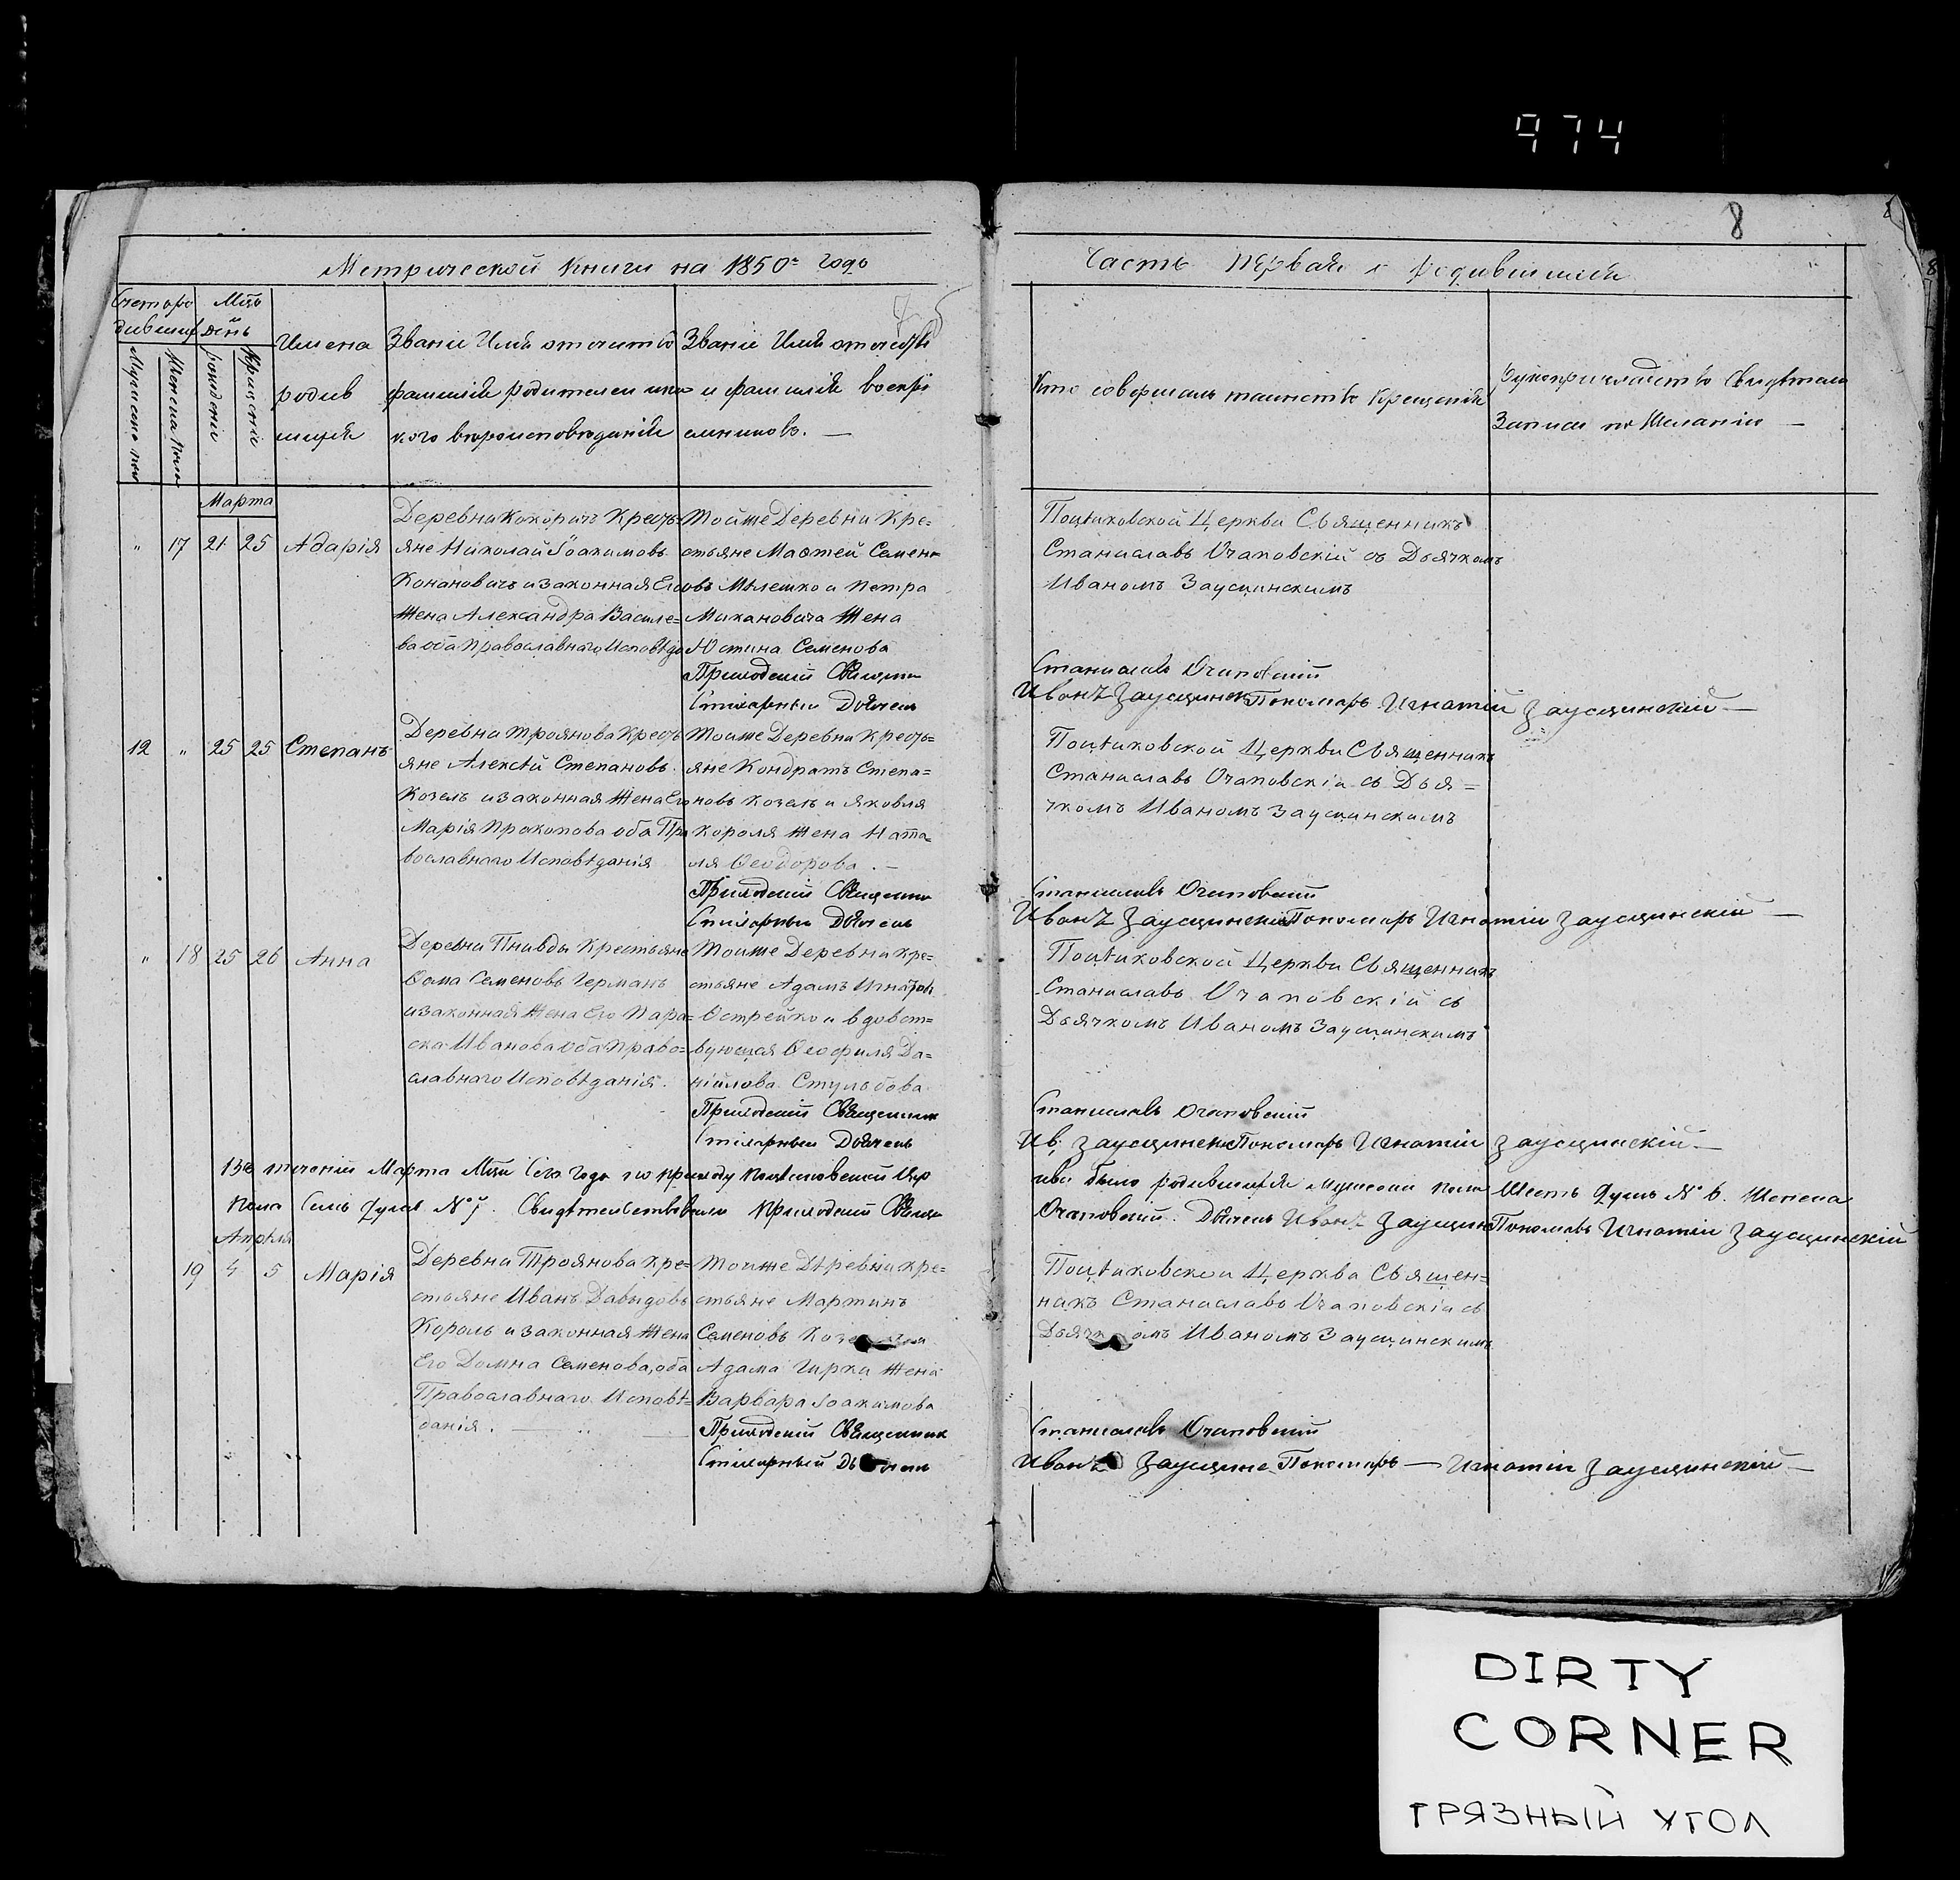 974
8
Метрической книги на 1850й годъ
Часть первая о родившихся
Счетъ ро
дившихся
Мцъ
и
день
Мужеска пола
Женска пола
рожденія
Крещенія
Имена
родив
шихся
Званіе Имя отчество
фамилія родителей и ка
кого вѣроисповѣданія
Званіе Имя отчество
и фамилія воспрі
емниковъ. —
Кто совершалъ таинство Крещенія
Рукоприкладство Свидѣтелей
Записи по Желанію —
Марта
" 17 21 25 Адарія
Деревни Кокоричъ Кресть=
яне Николай Іоакимовъ
Конановичъ и законная Его
Жена Александра Василе=
ва оба Православнаго Исповѣда
Тойже Деревни Кре=
стьяне Маѳтей Семен
овъ Мѣлешко и Петра
Микановича Жена
Юстина Семенова
Приходскій Священни
Стихарный Дьячекъ
Поцѣиховской Церкви Священникъ
Станиславъ Очаповскій съ Дьячкомъ
Иваномъ Заусцинскимъ
Станиславъ Очаповскій
Иванъ Заусцинск Пономарь Игнатій Заусцинскій —
12 " 25 25 Степанъ
Деревни Троянова Кресть
яне Алексѣй Степановъ
Козелъ и законная Жена Его
Марія Прокопова оба Пра
вославнаго Исповѣданія
Тойже Деревни Кресть=
яне Кондратъ Степа=
новъ Козелъ и Яковля
Короля Жена Ната
ля Ѳеодорова. —
Приходскій Священни
Стихарный Дьячекъ
Поцѣиховской Церкви Священникъ
Станиславъ Очаповскій съ Дья=
чкомъ Иваномъ Заусцинскимъ
Станиславъ Очаповскій
Иванъ Заусцинскій Пономарь Игнатій Заусцинскій —
" 18 25 26 Анна
Деревни Пнивды Крестьяне
Ѳома Семеновъ Германъ
и законная Жена Его Пара=
ска Иванова оба Право=
славнаго Исповѣданія.
Тойже Деревни Кре=
стьяне Адамъ Игнатов
Острейко и вдовст=
вующая Ѳеофиля Да=
ніилова Стульбова
Приходскій Священник
Стихарный Дьячекъ
Поцѣиховской Церкви Священникъ
Станиславъ Очаповскій съ
Дьячкомъ Иваномъ Заусцинскимъ
Станиславъ Очаповскій
Ив. Заусцинск Пономарь Игнатій Заусцинскій —
Въ теченіи Марта Мца Сего Года по приходу Поцѣиховской Цер
кви было родившихся Мужеска пола Шесть Душъ № 6. Женска
Пола Семь Душъ № 7. Свидѣтельствовали Приходскій Священ
Очаповскій. Дьячекъ Иванъ Заусцин Пономарь Игнатій Заусцинскій
Апрѣля
19 4 5 Марія
Деревни Троянова Кре=
стьяне Иванъ Давыдовъ
Король и законная Жена
Его Домна Семенова, оба
Православнаго Исповѣ=
данія. —
Тойже Деревни Кре=
стьяне Мартинъ
Семеновъ
Адама Гирки Жена
Варвара Іоакимова
Приходскій Священник
Стихарный Дьячекъ
Поцѣиховской Церкви Священ=
никъ Станиславъ Очаповскій съ
Дьячкомъ Иваномъ Заусцинскимъ
Станиславъ Очаповскій
Иванъ Заусцинс Пономарь — Игнатій Заусцинскій —
DIRTY
CORNER
ГРЯЗНЫЙ УГОЛ